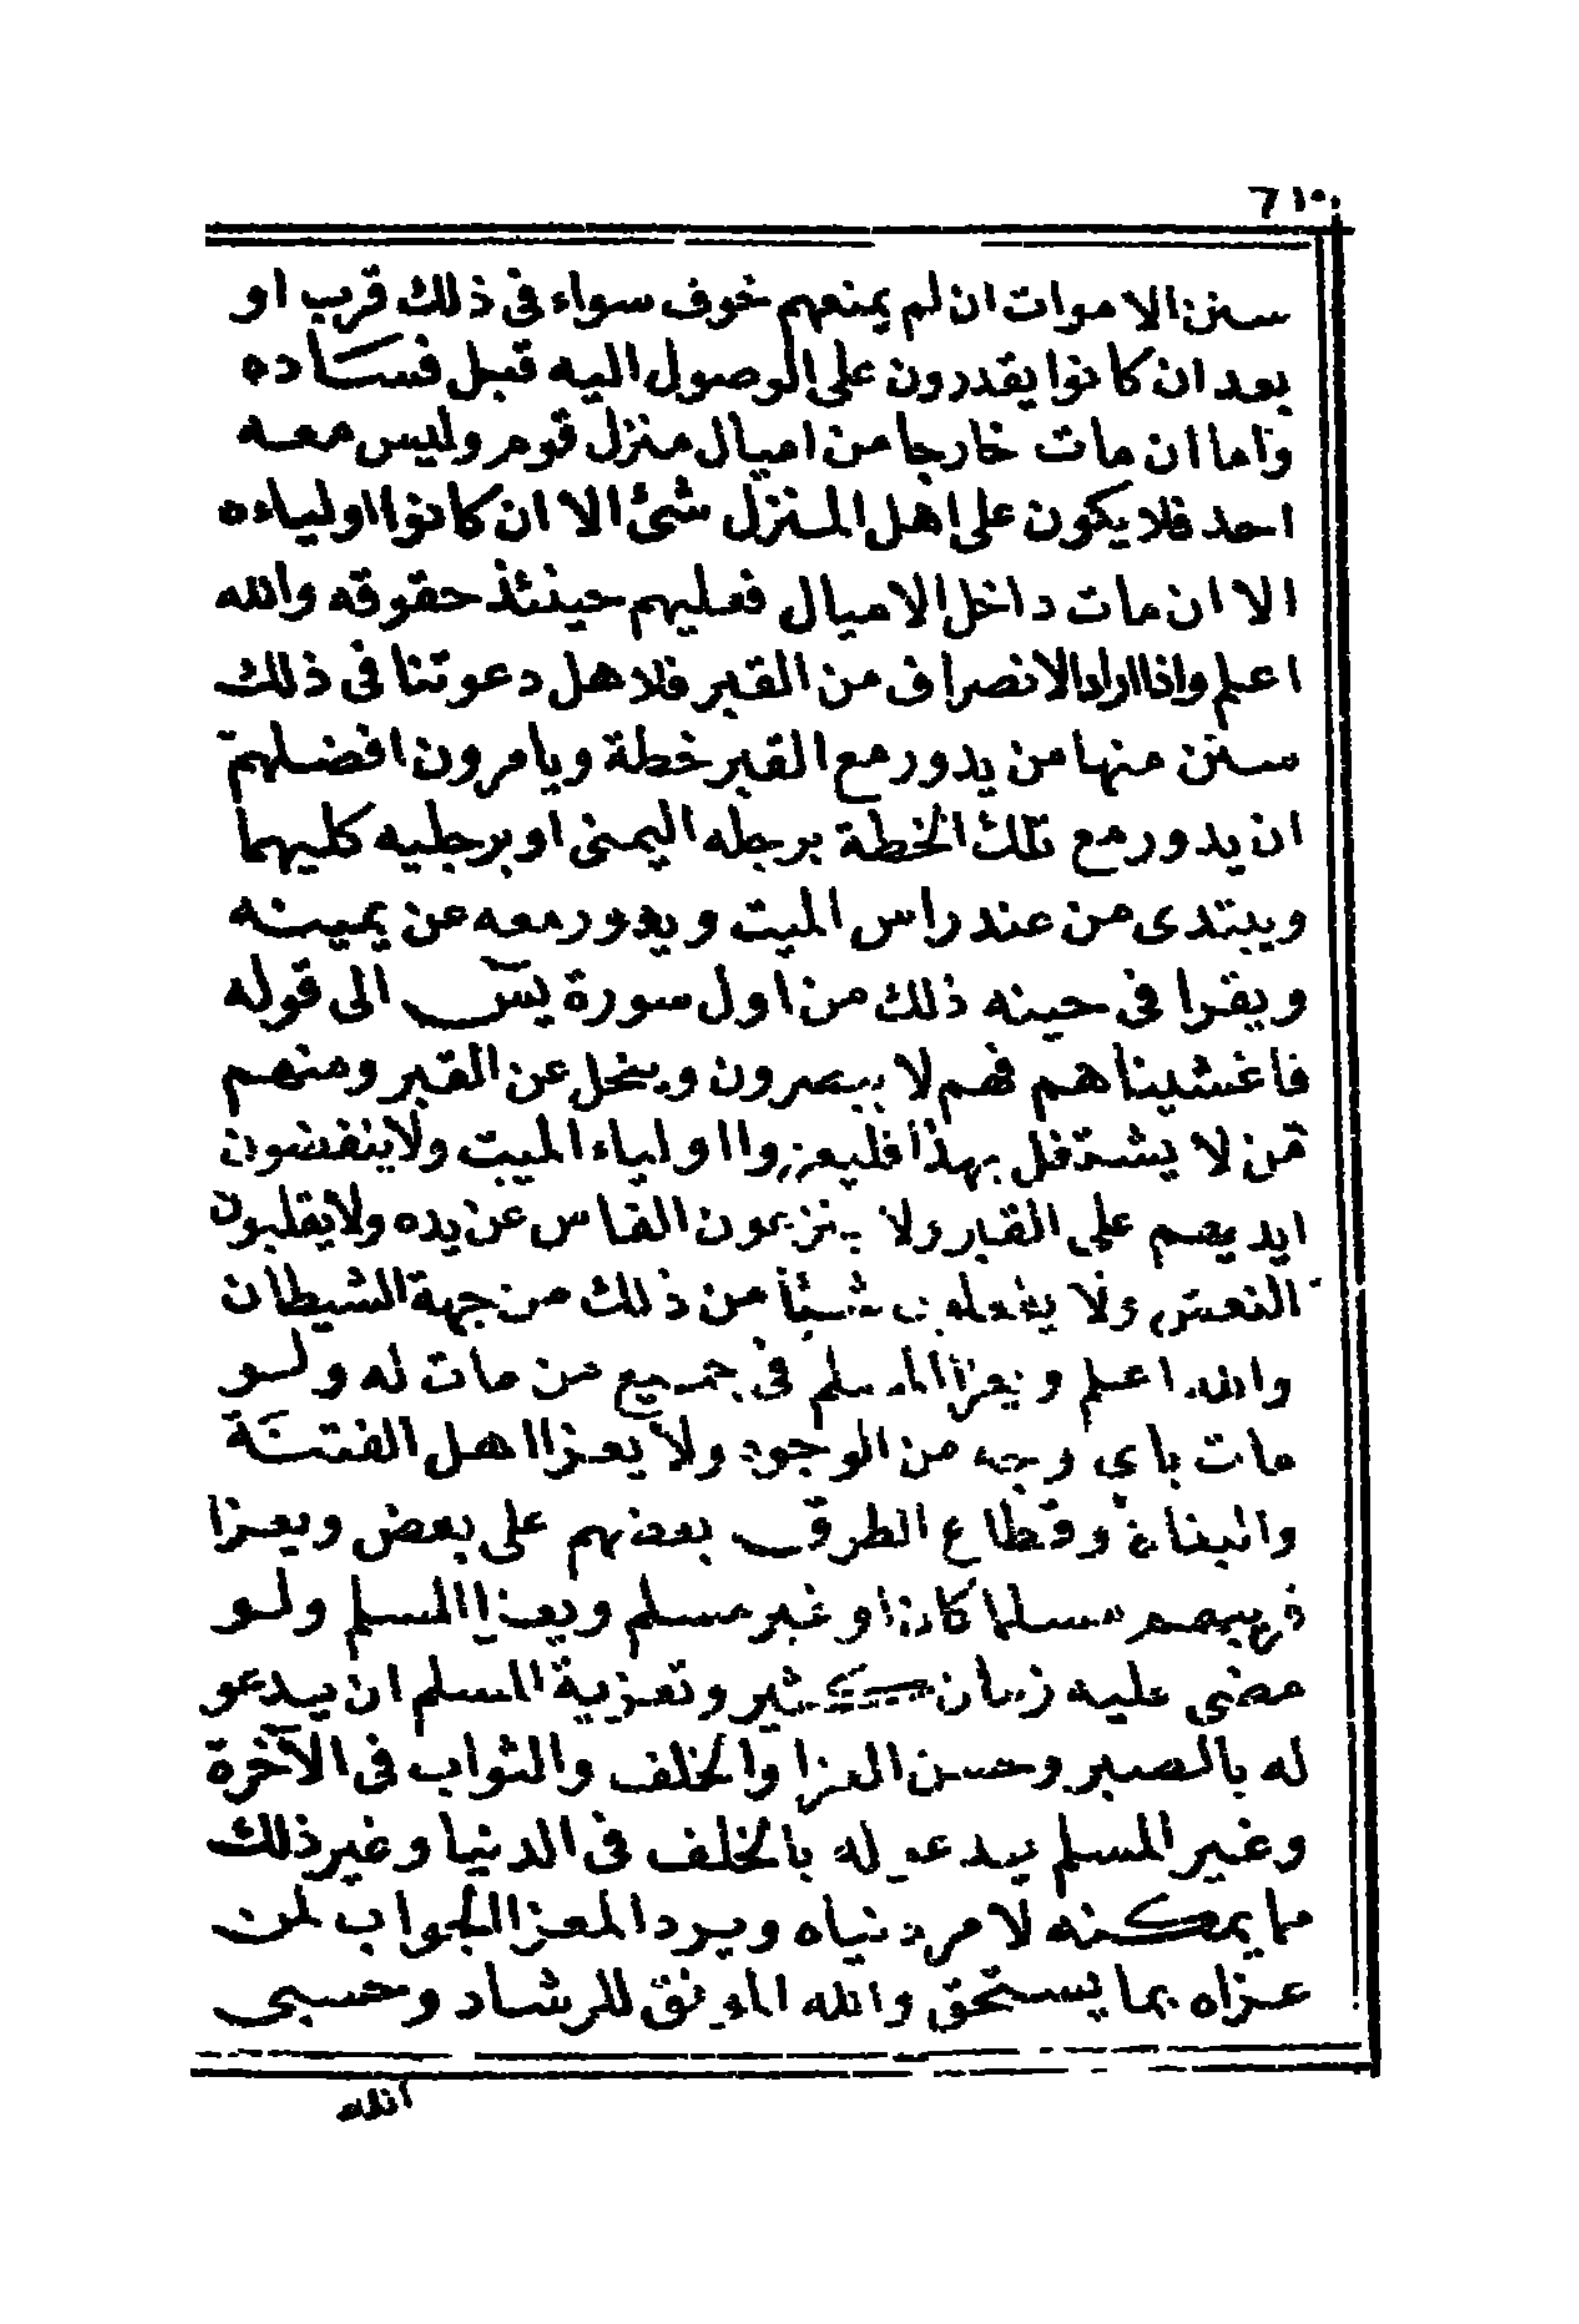 سنن الاموات ان لم يمنعهم خوف سواء فى ذلك قرب او
بعد ان كانوا يقدرون على الوصول اليه قبل فساده
واما ان مات خارجا من اميال منزل قوم وليس معه
احد فلا يكون على اهل المنزل شئ الا ان كانوا اولياءه
الا ان مات داخل الاميال فعليهم حينئذ حقوقه والله
اعلم واذا اراد الانصراف من القبر فلاهل دعوتنا فى ذلك
سنن منها من يدور مع القبر خطة ويامرون افضلهم
ان يدور مع تلك الخطة برجله اليمنى او برجليه كليهما
ويبتدى من عند راس الميت ويدور معه عن يمينه
ويقرا فى حينه ذلك من اول سورة يس الى قوله
فاغشيناهم فهم لا يبصرون وينحل عن القبر ومنهم
من لا يشتغل بهذا فليعزوا اولياء الميت ولا ينفضون
ايديهم على القبر ولا ينزعون الفاس عن يده ولا يقلبون
النعش ولا يفعلون شيئا من ذلك من جهة الشيطان
والله اعلم ويعزا المسلم فى جميع من مات له ولو
مات باي وجه من الوجوه ولا يعزا اهل الفتنة
والبغاة وقطاع الطرق بعضهم على بعض ويعزا
قريبهم مسلما كان او غير مسلم ويعزا المسلم ولو
مضى عليه زمان كثير وتعزية المسلم ان يدعو
له بالصبر وحسن العزا والخلف والثواب فى الآخرة
وغير المسلم يدعو له بالخلف فى الدنيا وغير ذلك
مما يمكنه لامر دنياه ويرد المعزا الجواب لمن
عزاه بما يستحق والله الموفق للرشاد وحسبى
الله